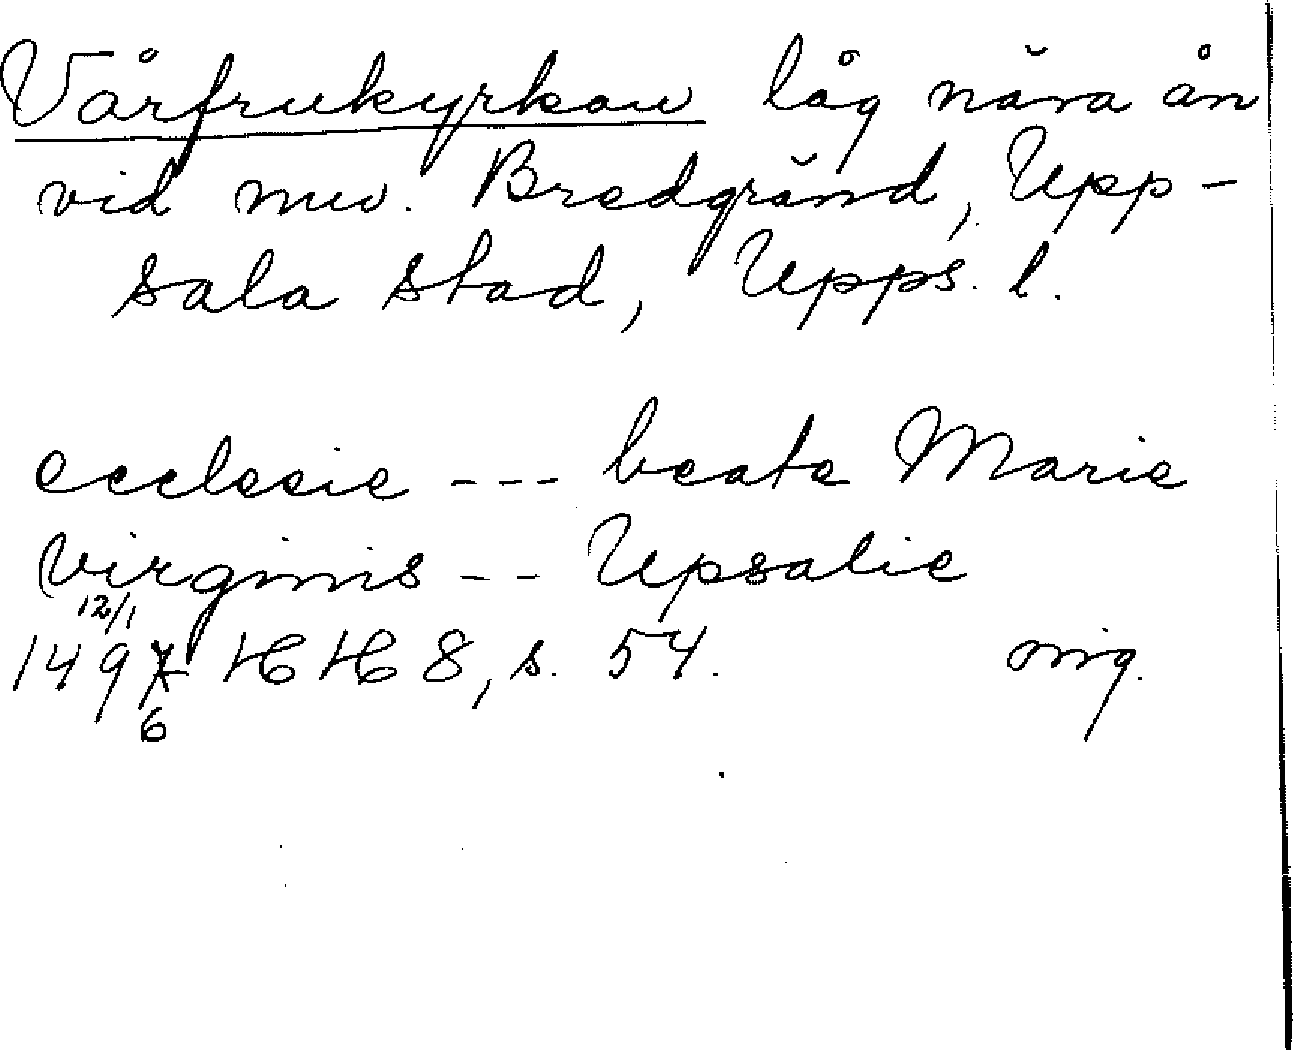 Vårfrukyrkan låg nära ån
vid nuv. Bredgränd, Upp-
sala stad, Upps. l.
ecclesie --- beate Marie
virginis -- Upsalie
12/1
1497 HH 8, s. 54. orig.
6